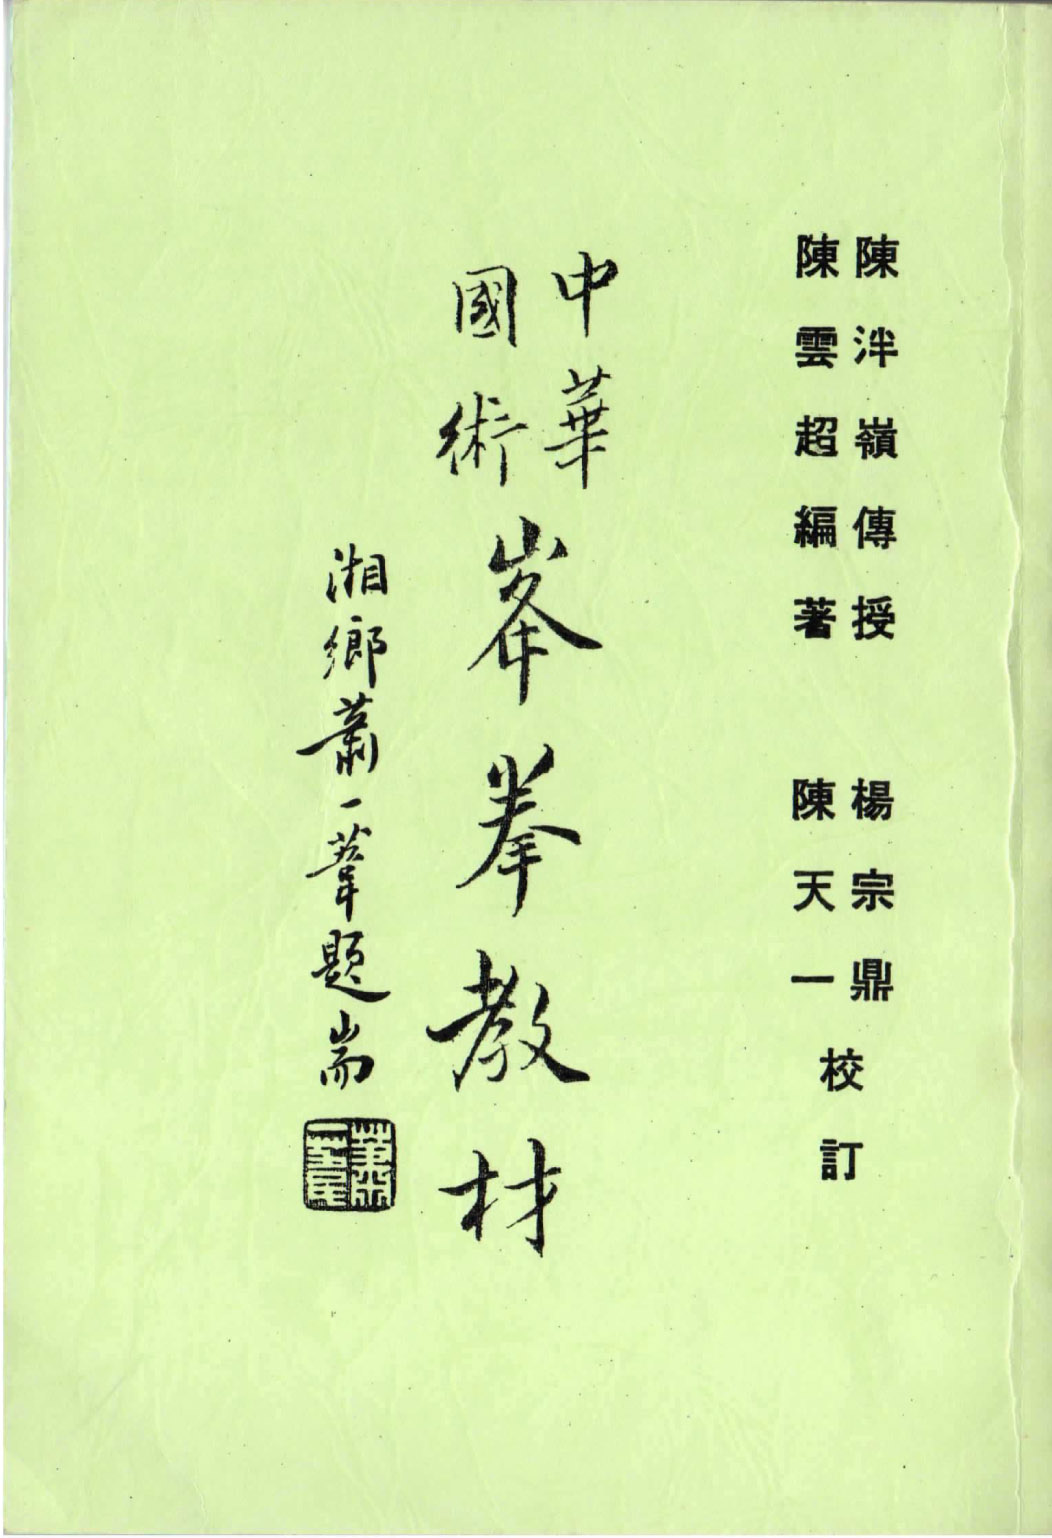 陳泮嶺傳授
陳雲超編著
楊宗鼎
陳天一
校訂
中華
國術
峯拳教材
湘鄉蕭一葦題耑